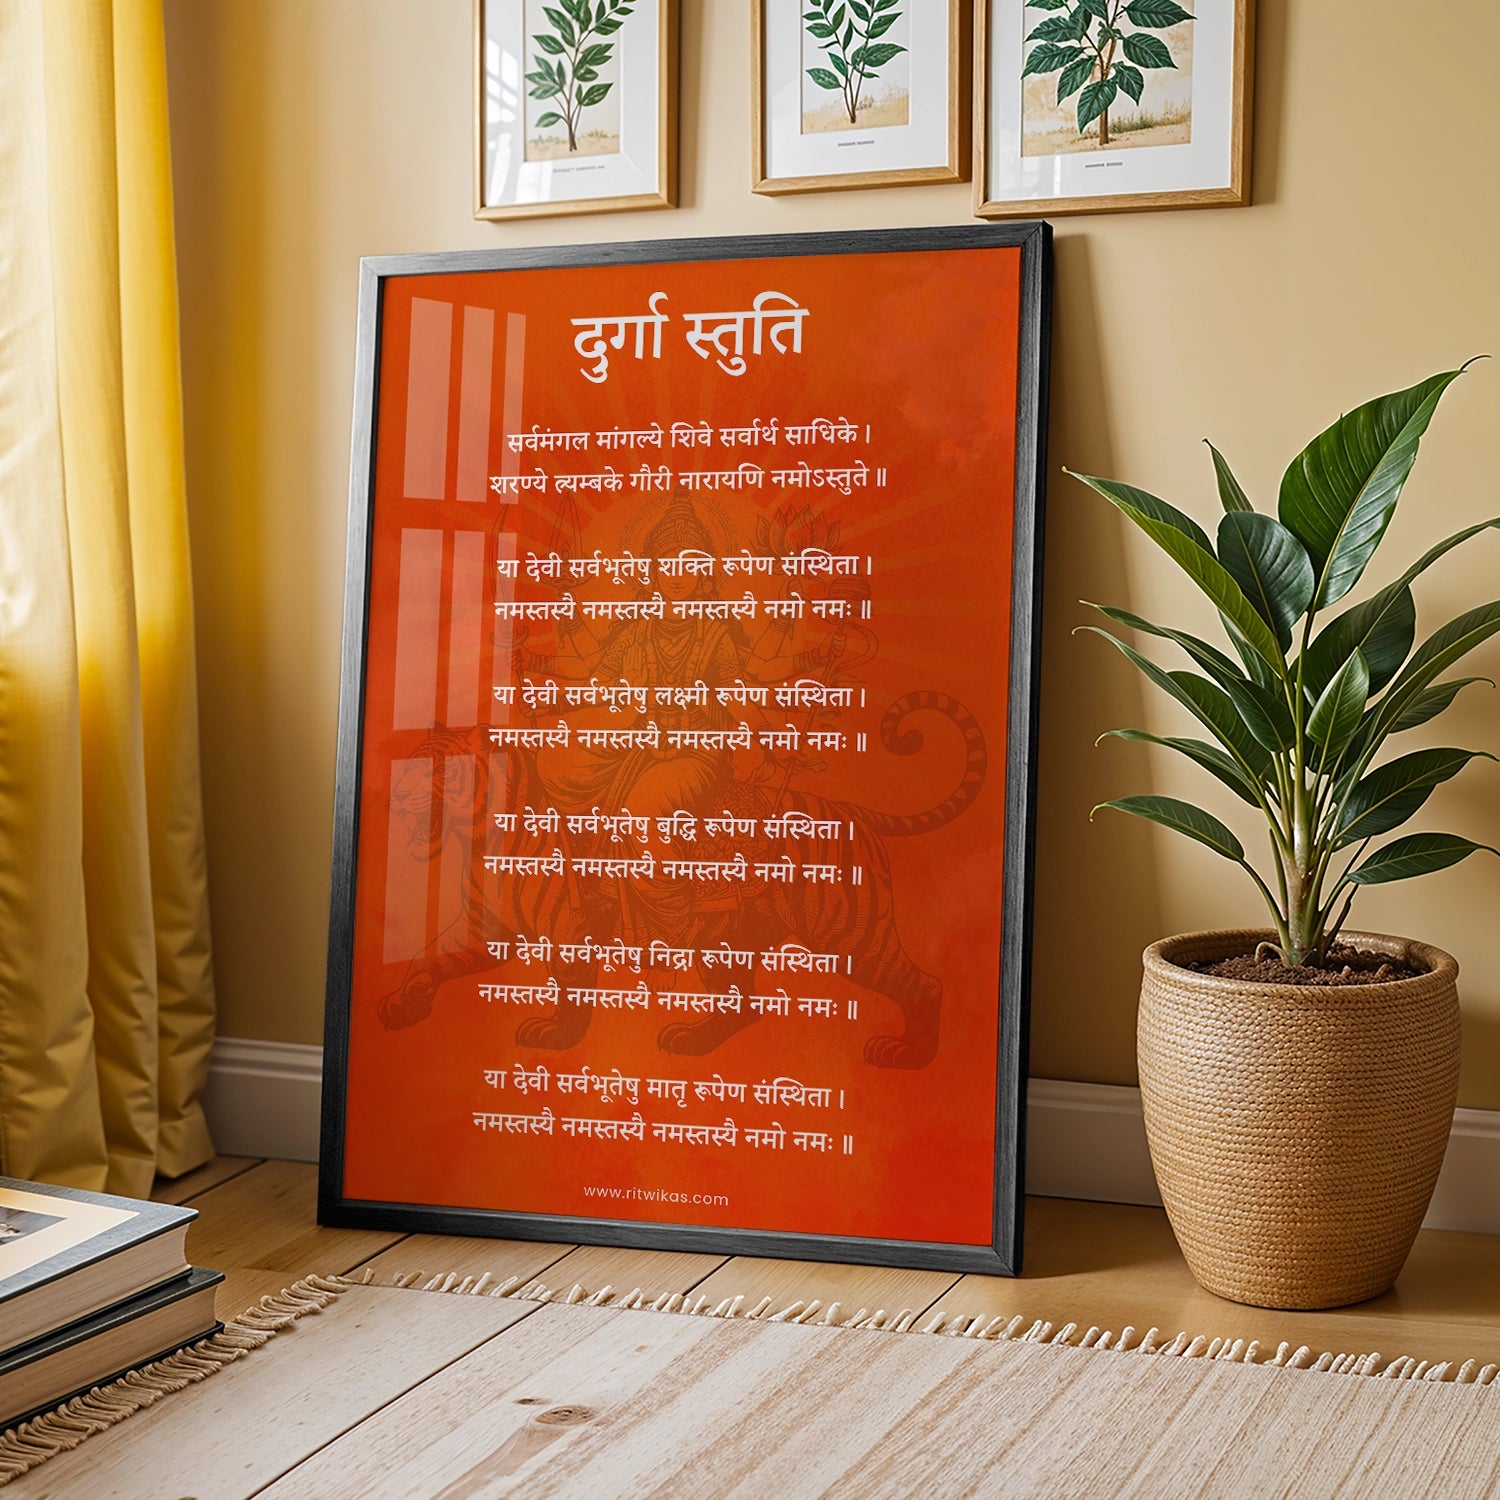 दुर्गा स्तुति
सर्वमंगल मांगल्ये शिवे सर्वार्थ साधिके।
शरण्ये त्र्यम्बके गौरी नारायणि नमोऽस्तुते॥
या देवी सर्वभूतेषु शक्ति रूपेण संस्थिता।
नमस्तस्यै नमस्तस्यै नमस्तस्यै नमो नमः॥
या देवी सर्वभूतेषु लक्ष्मी रूपेण संस्थिता।
नमस्तस्यै नमस्तस्यै नमस्तस्यै नमो नमः॥
या देवी सर्वभूतेषु बुद्धि रूपेण संस्थिता।
नमस्तस्यै नमस्तस्यै नमस्तस्यै नमो नमः॥
या देवी सर्वभूतेषु निद्रा रूपेण संस्थिता।
नमस्तस्यै नमस्तस्यै नमस्तस्यै नमो नमः॥
या देवी सर्वभूतेषु मातृ रूपेण संस्थिता।
नमस्तस्यै नमस्तस्यै नमस्तस्यै नमो नमः॥
www.ritwikas.com